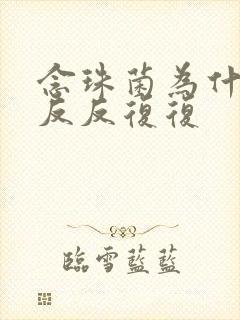 念珠菌為什
反反復復
臨雪藍藍